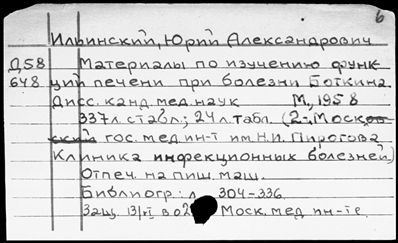 6
Ильинский, Юрий Александрович
Д58 Материалы по изучению функ-
648 ций печени при болезни Боткина
Дисс. канд. мед. наук М., 1958
337 л. с табл.; 24 л. табл. (2-Москов-
ский гос. мед. ин-т им. Н.И. Пирогова
Клиника инфекционных болезней)
Отпеч. на пиш. маш.
Библиогр.: л. 304-336.
Защ. 13/VI в о2 Моск. мед ин-те